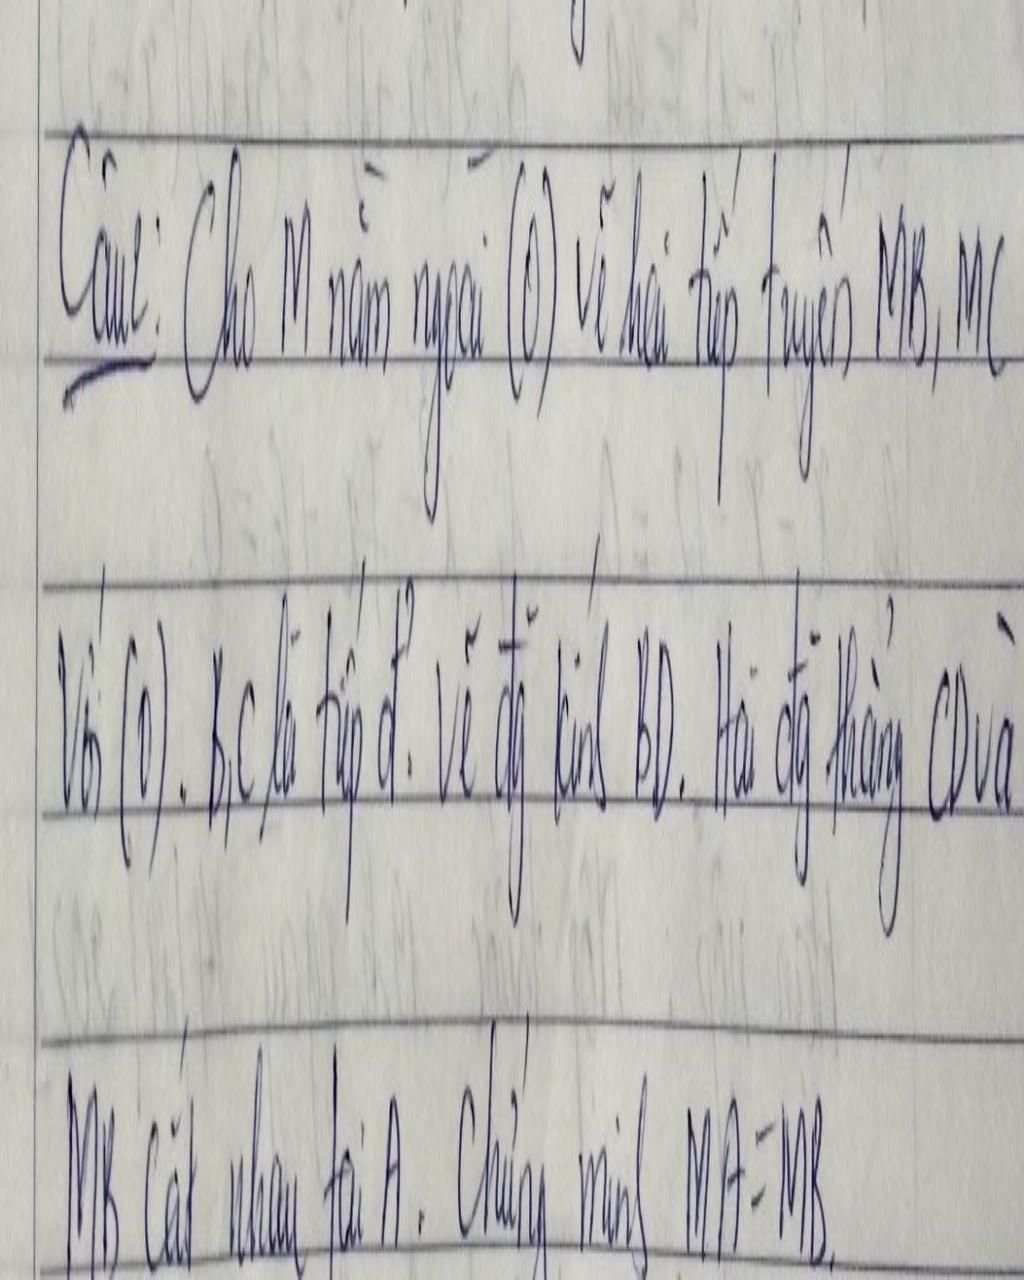 Câu2: Cho M nằm ngoài (O) vẽ hai tiếp tuyến MB, MC
Với (O). B,C là tiếp đ'. Vẽ đg̃ kính BD. Hai đg̃ thẳng CD và
MB cắt nhau tại A. Chứng minh MA=MB.